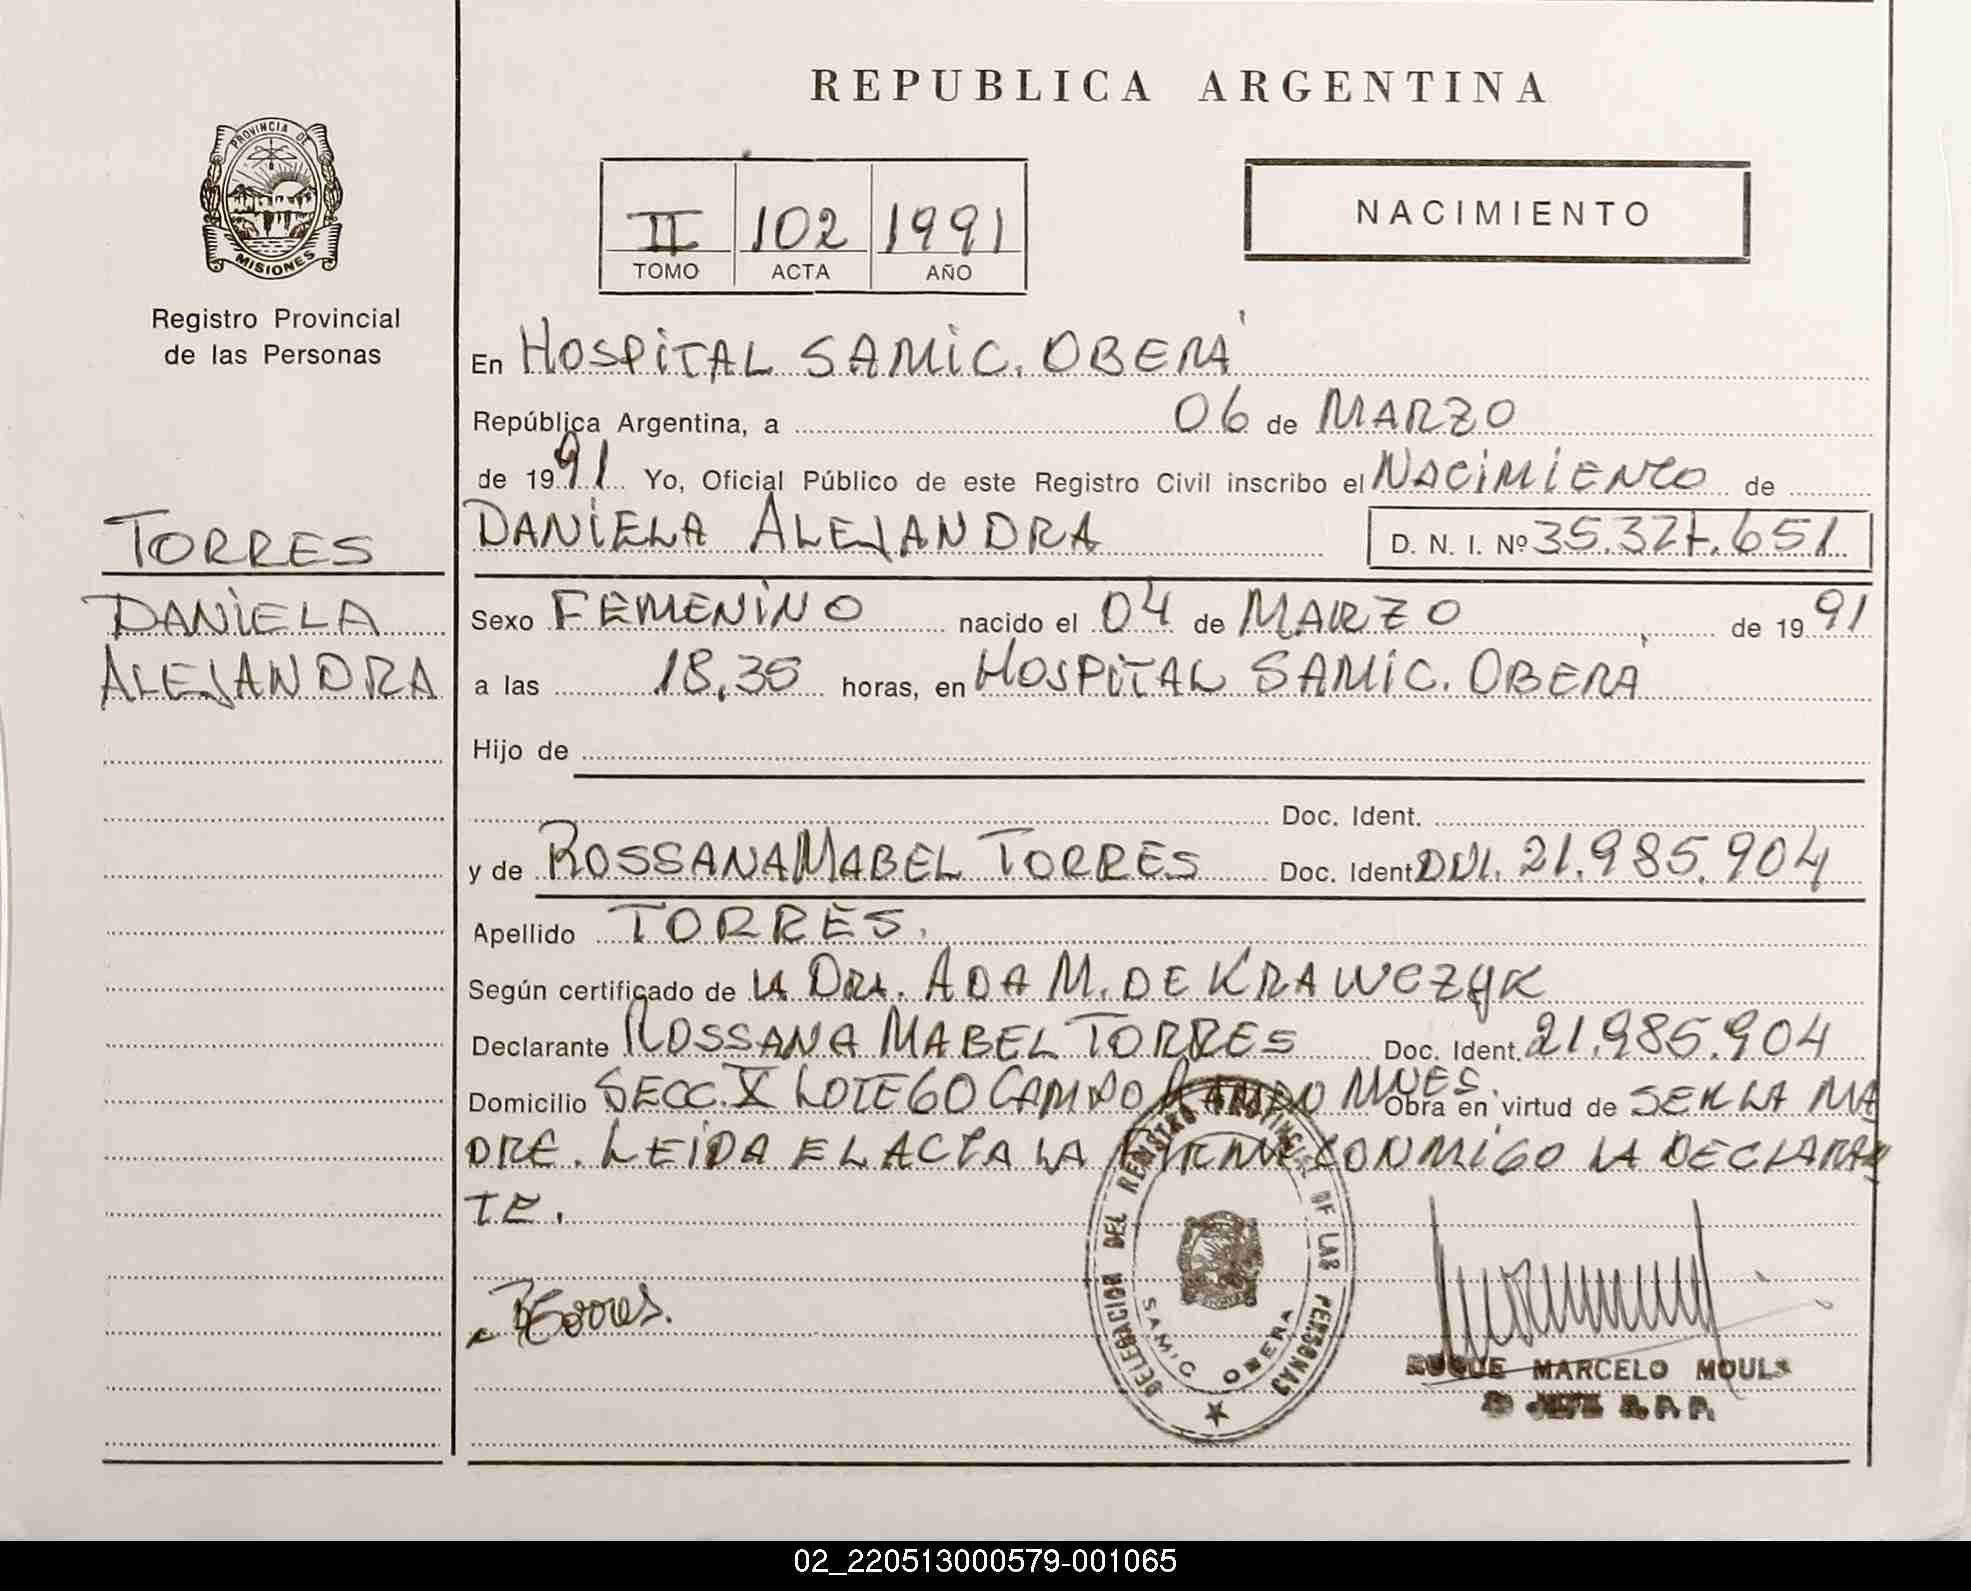 REPUBLICA ARGENTINA
PROVINCIA DE
MISIONES
Registro Provincial
de las Personas
II 102 1991
TOMO ACTA AÑO
NACIMIENTO
TORRES
DANIELA
ALEJANDRA
En HOSPITAL SAMIC. OBERÁ
República Argentina, a 06 de MARZO
de 1991 Yo, Oficial Público de este Registro Civil inscribo el NACIMIENTO de
DANIELA ALEJANDRA D. N. I. Nº 35.327.651
Sexo FEMENINO nacido el 04 de MARZO de 1991
a las 18,35 horas, en HOSPITAL SAMIC. OBERÁ
Hijo de
Doc. Ident.
y de ROSSANA MABEL TORRES Doc. Ident DNI. 21.985.904
Apellido TORRES.
Según certificado de LA DRA. ADA M. DE KRAWCZYK
Declarante ROSSANA MABEL TORRES Doc. Ident. 21.985.904
Domicilio SECC. X LOTE 60 CAMPO RAMON MNES. Obra en virtud de SER LA MA
DRE. LEIDA EL ACTA LA FIRMA CONMIGO LA DECLARAN
TE.
RTorres.
DELEGACION DEL REGISTRO PROVINCIAL DE LAS PERSONAS
SAMIC OBERA
MARCELO
R.P.P.
02_220513000579-001065